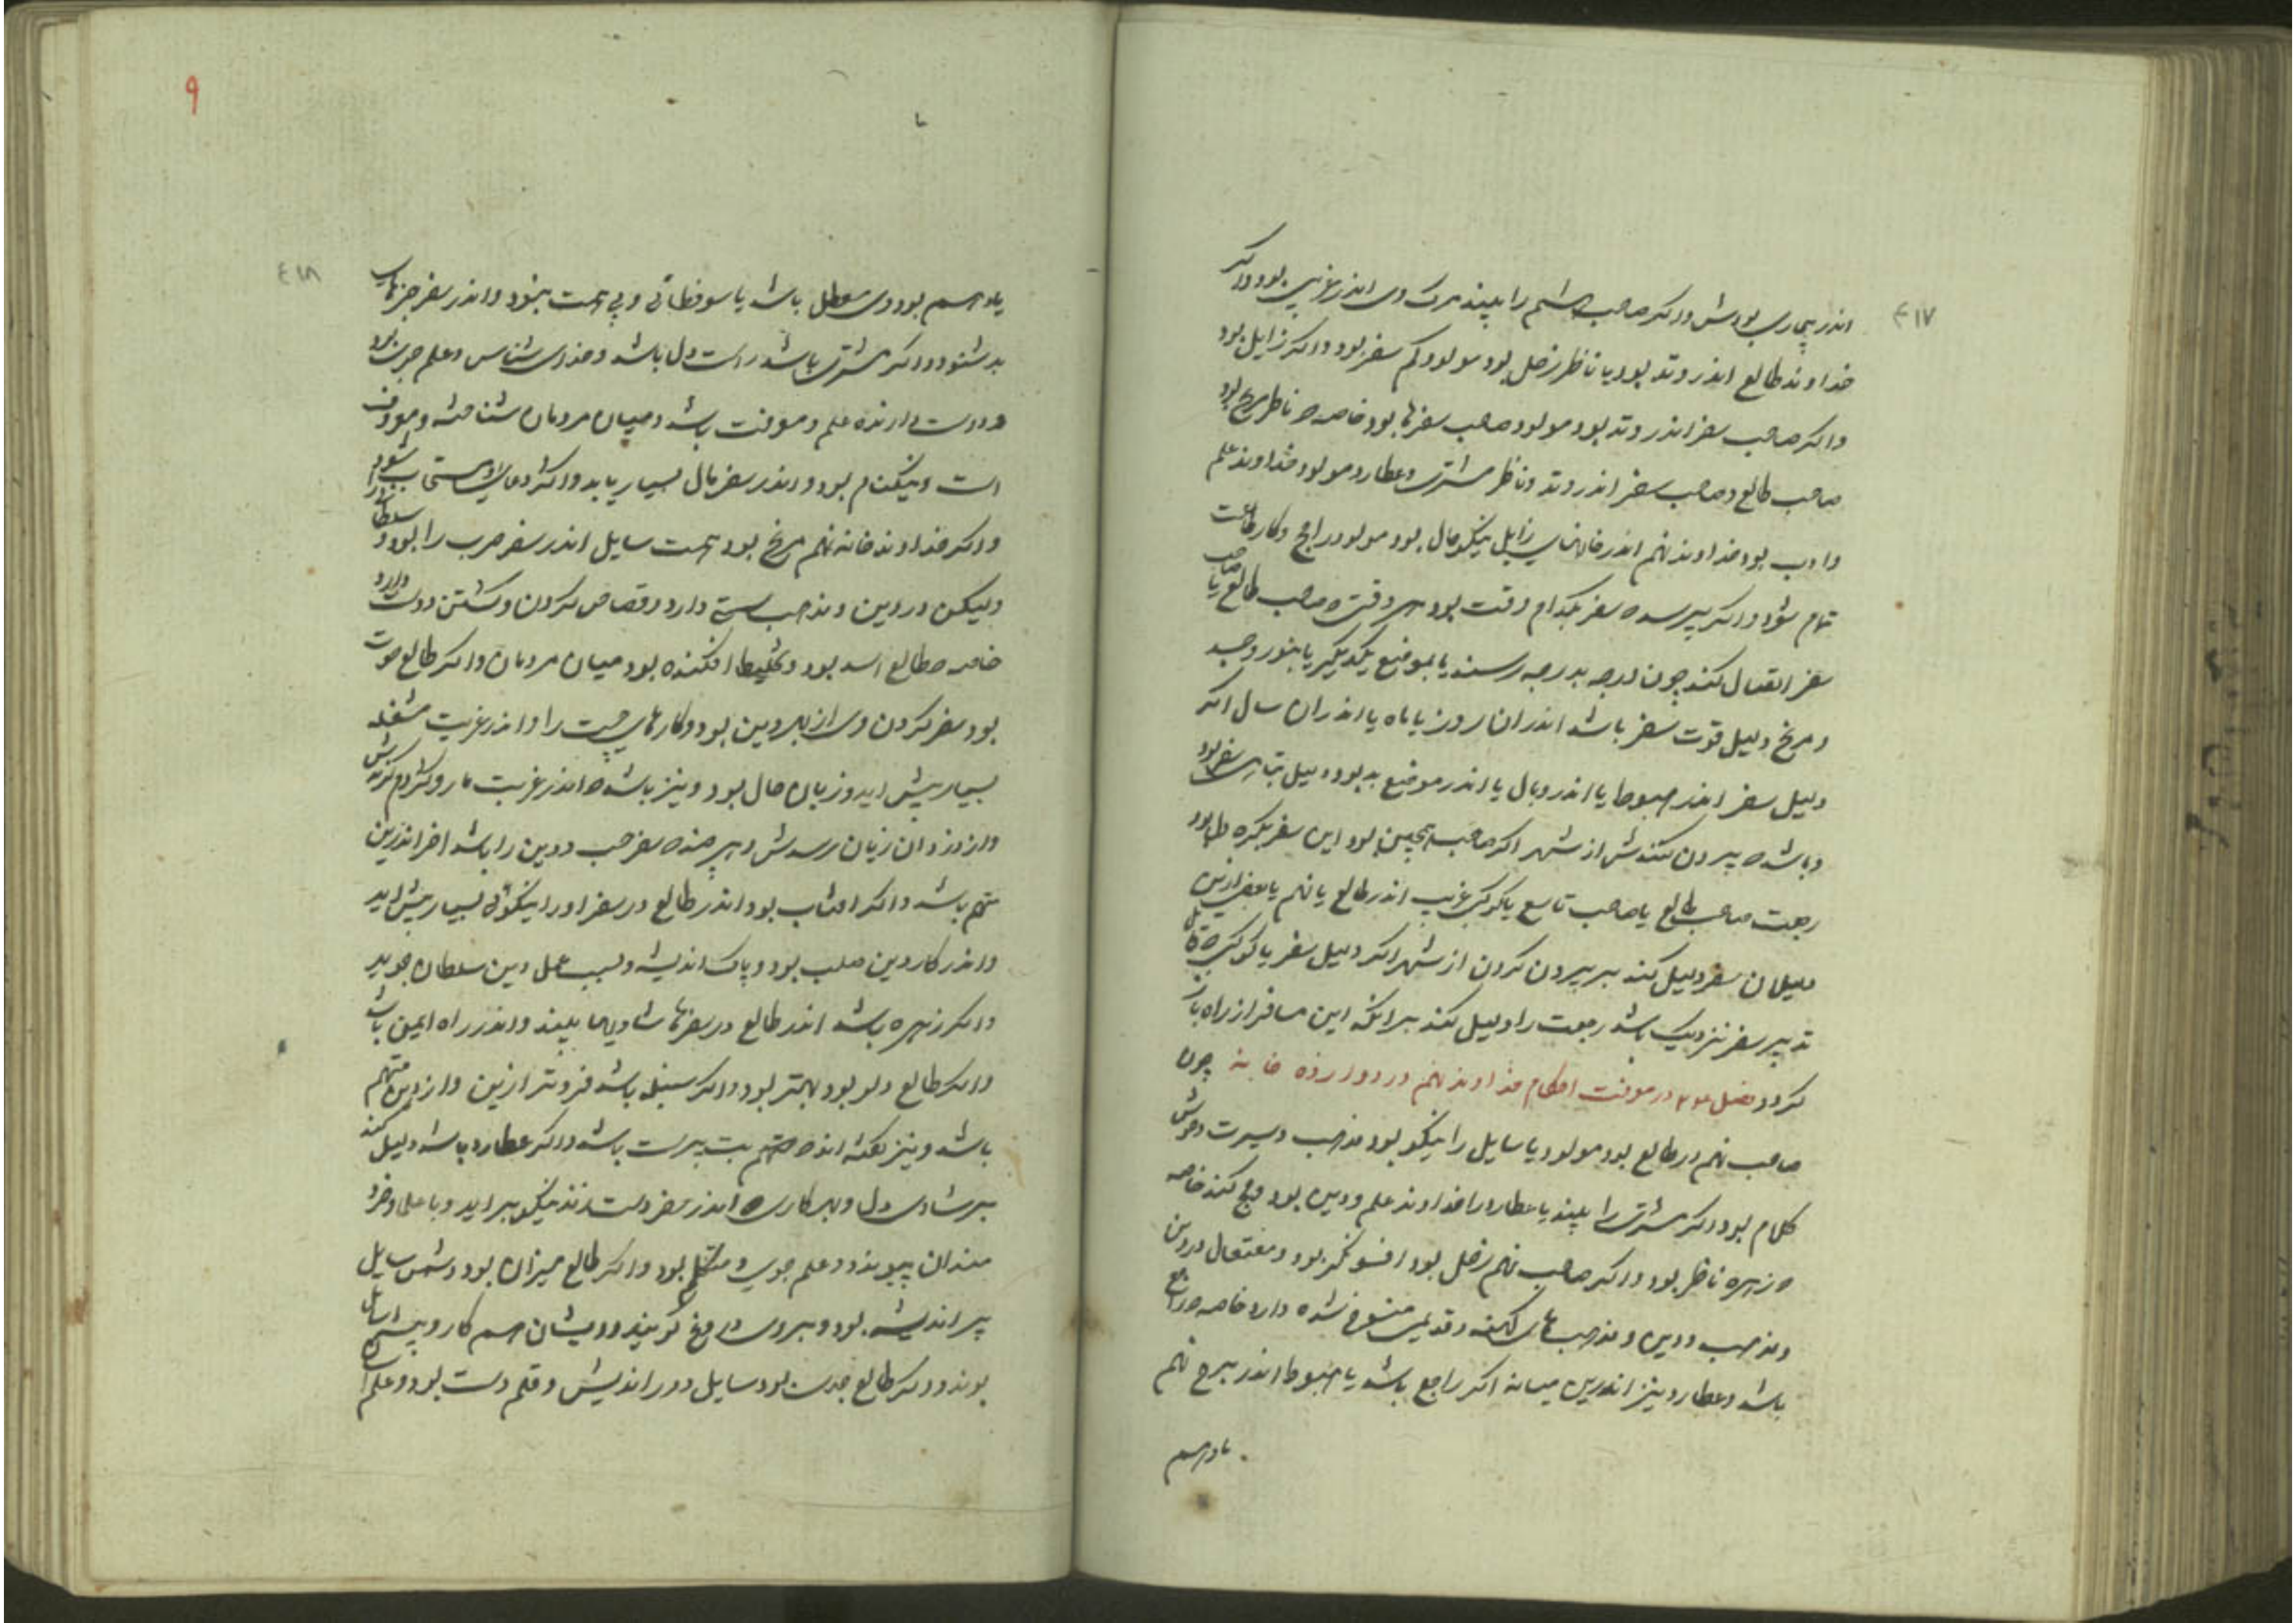 ۴۱۷
اندر بیماری بودش واکر صاحب هشتم را بیند مرک وی اندر غریبی بود واکر
خداوند طالع اندر وتد بود یا ناظر زحل بود مولود کم سفر بود واکر زایل بود
واکر صاحب سفر اندر وتد بود مولود صاحب سفرها بود خاصه که ناظر مریخ بود
صاحب طالع و صاحب سفر اندر وتد و ناظر مشتری و عطارد مولود خداوند علم
و ادب بود خداوند نهم اندر خانهای زایل نیکو حال بود مولود را حج و کار طاعت
تمام شود واکر پرسد که سفر بکدام وقت بود هر وقتی که صاحب طالع یا صاحب
سفر اتصال کنند چون درجه بدرجه رسند یا بموضع یکدیگر یا بنور و جسد
و مریخ دلیل قوت سفر باشد اندران روز یا ماه یا اندران سال اکر
دلیل سفر اندر هبوط یا اندر وبال یا اندر موضع بد بود دلیل تباهی سفر بود
و باشد که بیرون کنندش از شهر اکر صاحب همچنین بود این سفر بکره بود
رجعت صاحب طالع یا صاحب تاسع یا کوکبی غریب اندر طالع یا نهم یا بعضی ازین
دلیلان سفر دلیل کند بر بیرون کردن از شهر اکر دلیل سفر یا کوکبی که قابل
تدبیر سفر نزدیک باشد رجعت را دلیل کند برانکه این مسافر از راه باز
کردد فصل در معرفت احکام خداوند نهم در دوازده خانه چون
صاحب نهم در طالع بود مولود یا سایل را نیکو بود مذهب و سیرت و خوش
کلام بود واکر مشتری را بیند یا عطارد را خداوند علم و دین بود و حج کند خاصه
که زهره ناظر بود واکر صاحب نهم زحل بود افسونکر بود و مفتعل در دین
و مذهب و دین و مذهب های کهنه و قدیمی منسوخ شده دارد خاصه که راجع
باشد و عطارد نیز اندرین میانه اکر راجع باشد یا هبوط اندر برج نهم
یا در هم
۹
۴۱۸
یا در هم بود وی معطل باشد یا سوفطائی و بی همت بود و اندر سفر خبرهای
بد شنود واکر مشتری باشد راست دل باشد و خدای شناس و علم جوی بود
و دوست دارنده علم و معرفت باشد و میان مردمان شناخته و معروف
است و نیکنام بود و اندر سفر مال بسیار یابد واکثر دعای او مستجاب شود
واکر خداوند خانه نهم مریخ بود همت سایل اندر سفر حرب را بود و سلطان را
ولیکن در دین و مذهب سستی دارد و قصاص کردن و کشتن دوست دارد
خاصه که طالع اسد بود و تخلیط افکننده بود میان مردمان واکر طالع حوت
بود سفر کردن وی از بهر دین بود و کارهای را و اندر غربت مشغله
بسیار پیش اید و زیان مال بود و نیز باشد که اندر غربت مار و کژدم کزندش
و از دزدان زیان رسدش و هر چند که سفر حب و دین را باشد اخر اندرین
متهم باشد واکر افتاب بود اندر طالع در سفر او را نیکوئی بسیار پیش اید
و اندر کار دین صلب بود و پاک اندیشه و بسبب عمل دین سلطان جوید
واکر زهره باشد اندر طالع در سفرها شادیها بیند و اندر راه ایمن باشد
واکر طالع دلو بود بهتر بود واکر سنبله باشد فروتر ازین و از دین متهم
باشد و نیز کفته اند که متهم بت پرست باشد واکر عطارد باشد دلیل کند
بر شادی دل و بهر کاری که اندر سفر دست زند نیکو براید و با علما و خرد
مندان پیوندد و علم جوی و متکلم بود واکر طالع میزان بود و شمس سایل
پر اندیشه بود و بروی دروغ کویند و درویشان هم کار
بوند واکر طالع جدی بود سایل دور اندیش و قلم دست بود و علم